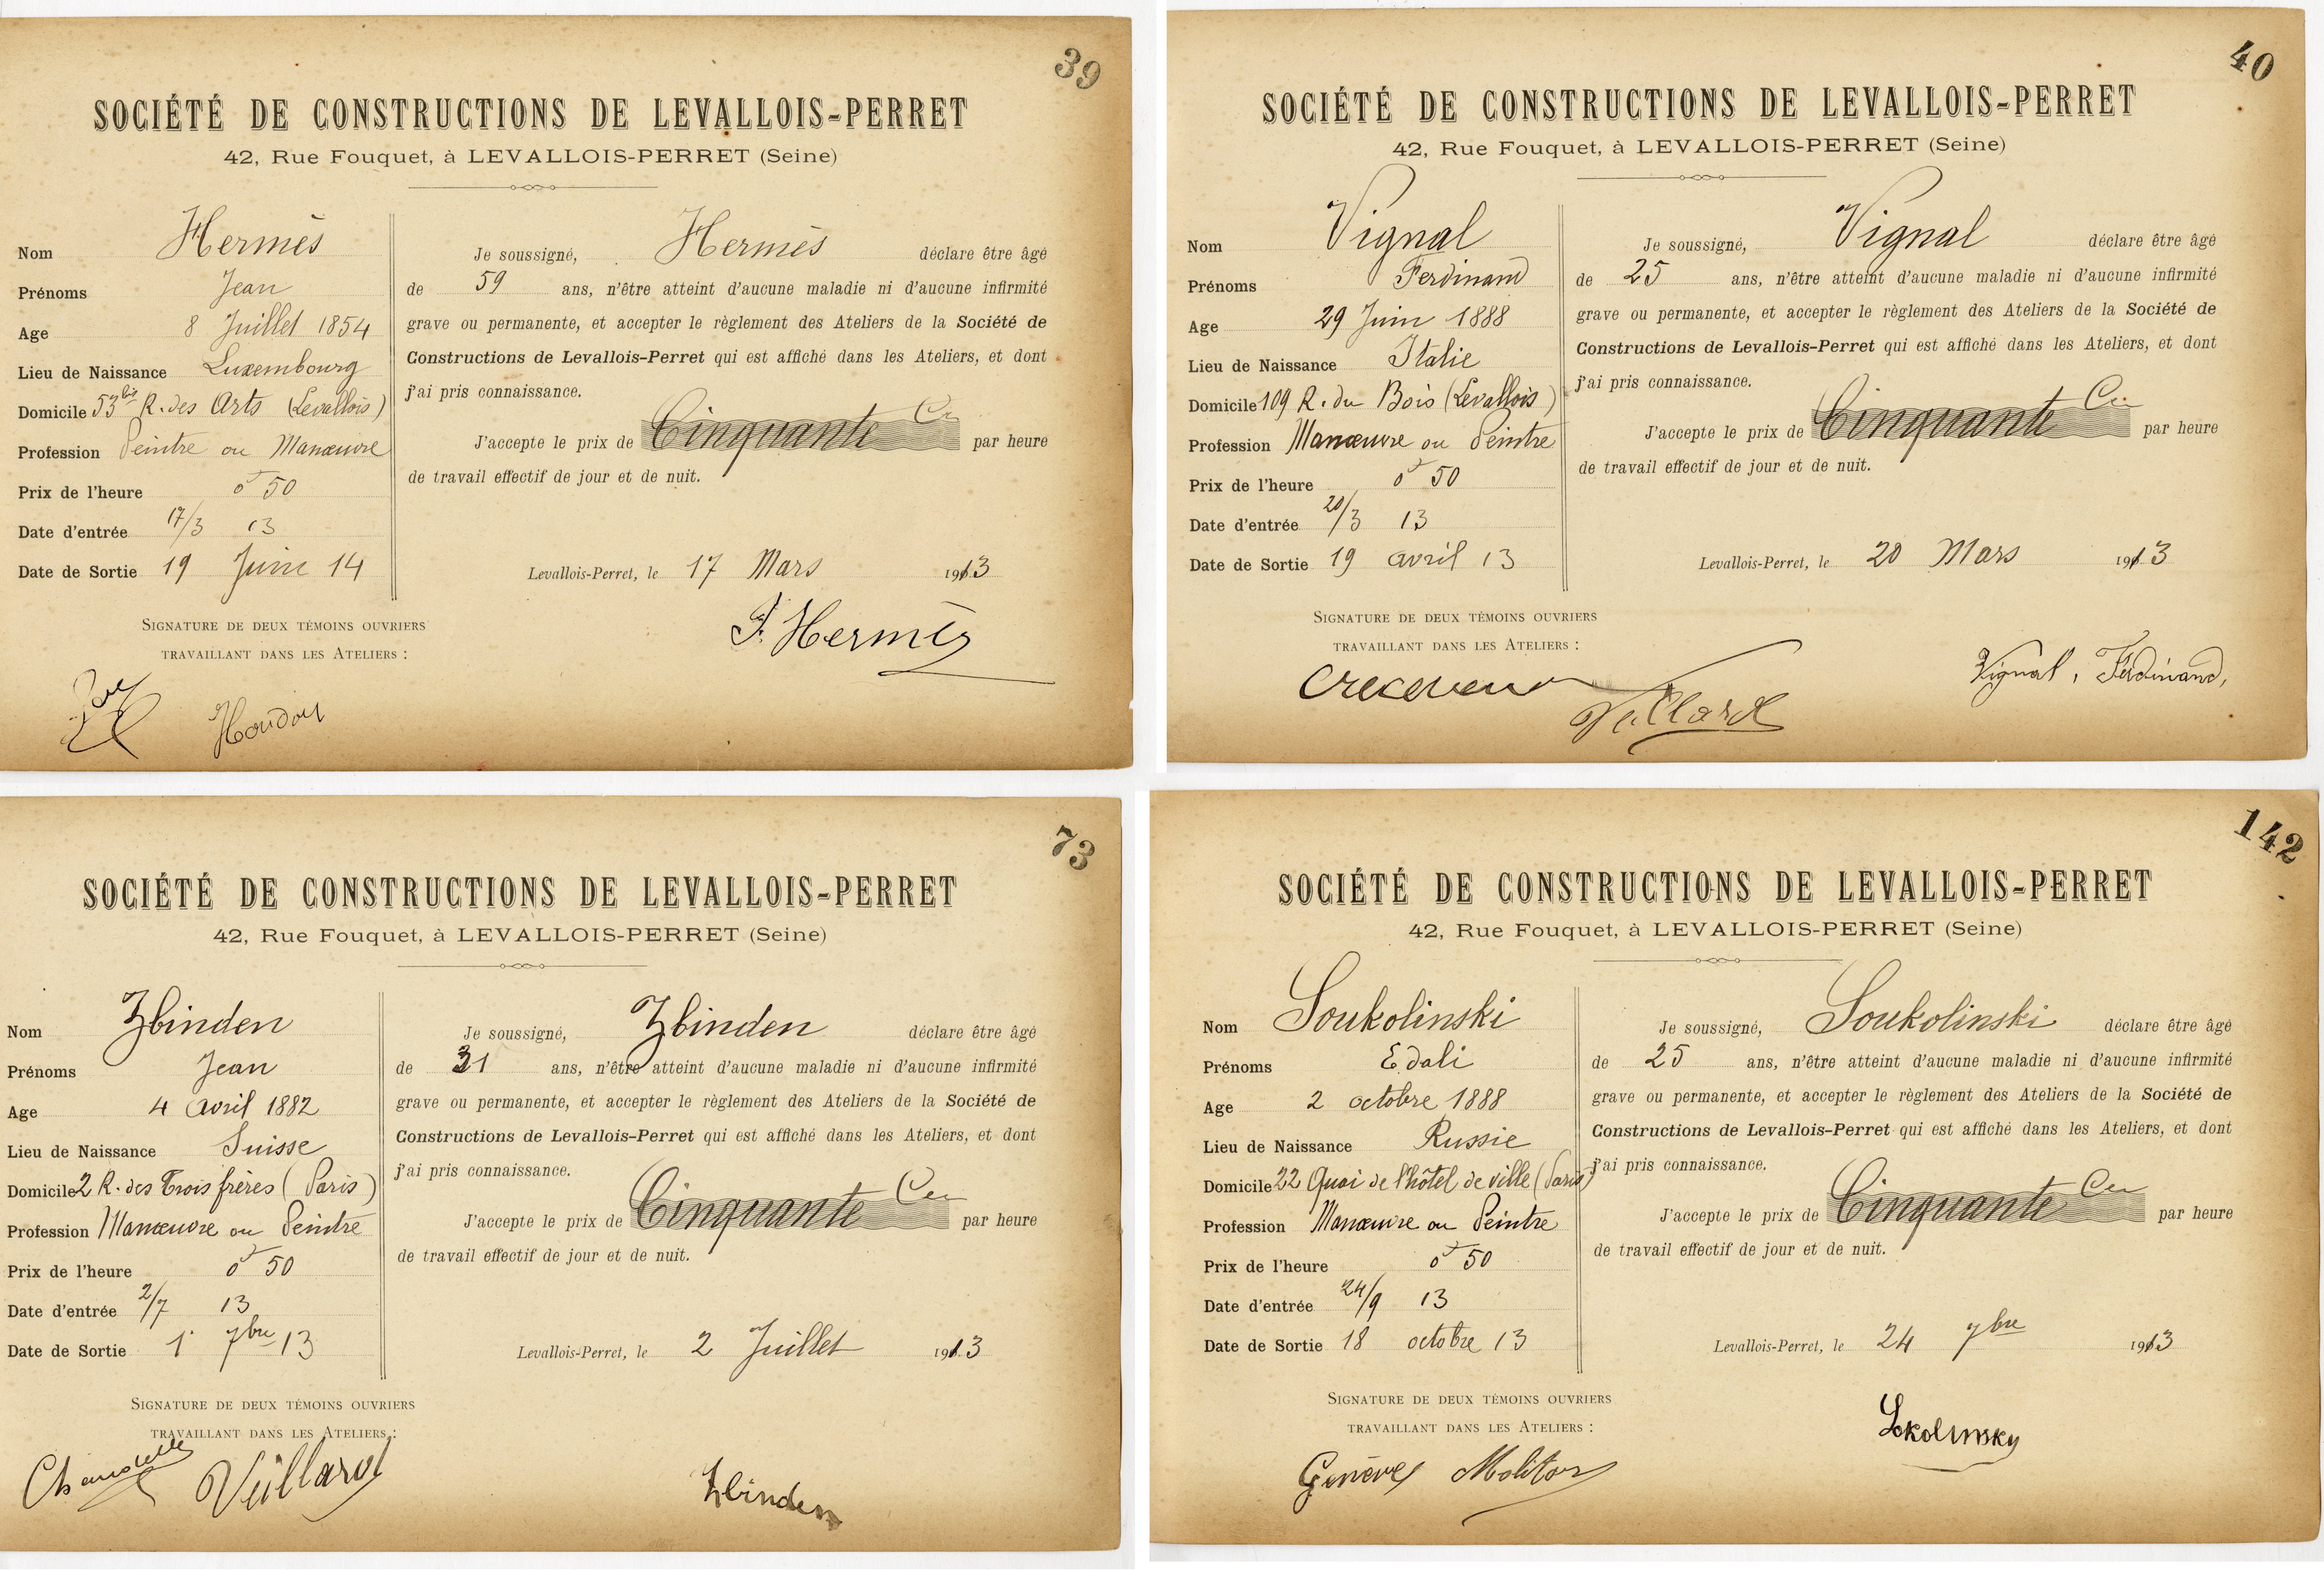 39
SOCIÉTÉ DE CONSTRUCTIONS DE LEVALLOIS-PERRET
42, Rue Fouquet, à LEVALLOIS-PERRET (Seine)
Nom Hermès
Prénoms Jean
Age 8 Juillet 1854
Lieu de Naissance Luxembourg
Domicile 53bis R. des Arts (Levallois)
Profession Peintre ou Manœuvre
Prix de l'heure 0f 50
Date d'entrée 17/3 13
Date de Sortie 19 Juin 14
SIGNATURE DE DEUX TÉMOINS OUVRIERS
TRAVAILLANT DANS LES ATELIERS :
Houdou
Je soussigné, Hermès déclare être âgé
de 59 ans, n'être atteint d'aucune maladie ni d'aucune infirmité
grave ou permanente, et accepter le règlement des Ateliers de la Société de
Constructions de Levallois-Perret qui est affiché dans les Ateliers, et dont
j'ai pris connaissance.
J'accepte le prix de Cinquante Ces par heure
de travail effectif de jour et de nuit.
Levallois-Perret, le 17 Mars 1913
J. Hermès
40
SOCIÉTÉ DE CONSTRUCTIONS DE LEVALLOIS-PERRET
42, Rue Fouquet, à LEVALLOIS-PERRET (Seine)
Nom Vignal
Prénoms Ferdinand
Age 29 Juin 1888
Lieu de Naissance Italie
Domicile 109 R. du Bois (Levallois)
Profession Manœuvre ou Peintre
Prix de l'heure 0f 50
Date d'entrée 20/3 13
Date de Sortie 19 avril 13
SIGNATURE DE DEUX TÉMOINS OUVRIERS
TRAVAILLANT DANS LES ATELIERS :
Veillard
Je soussigné, Vignal déclare être âgé
de 25 ans, n'être atteint d'aucune maladie ni d'aucune infirmité
grave ou permanente, et accepter le règlement des Ateliers de la Société de
Constructions de Levallois-Perret qui est affiché dans les Ateliers, et dont
j'ai pris connaissance.
J'accepte le prix de Cinquante Ces par heure
de travail effectif de jour et de nuit.
Levallois-Perret, le 20 Mars 1913
Vignal, Ferdinand,
73
SOCIÉTÉ DE CONSTRUCTIONS DE LEVALLOIS-PERRET
42, Rue Fouquet, à LEVALLOIS-PERRET (Seine)
Nom Zbinden
Prénoms Jean
Age 4 Avril 1882
Lieu de Naissance Suisse
Domicile 2 R. des Trois frères (Paris)
Profession Manœuvre ou Peintre
Prix de l'heure 0f 50
Date d'entrée 2/7 13
Date de Sortie 1r 7bre 13
SIGNATURE DE DEUX TÉMOINS OUVRIERS
TRAVAILLANT DANS LES ATELIERS :
Veillard
Je soussigné, Zbinden déclare être âgé
de 31 ans, n'être atteint d'aucune maladie ni d'aucune infirmité
grave ou permanente, et accepter le règlement des Ateliers de la Société de
Constructions de Levallois-Perret qui est affiché dans les Ateliers, et dont
j'ai pris connaissance.
J'accepte le prix de Cinquante Ces par heure
de travail effectif de jour et de nuit.
Levallois-Perret, le 2 Juillet 1913
Zbinden
142
SOCIÉTÉ DE CONSTRUCTIONS DE LEVALLOIS-PERRET
42, Rue Fouquet, à LEVALLOIS-PERRET (Seine)
Nom Soukolinski
Prénoms Edali
Age 2 octobre 1888
Lieu de Naissance Russie
Domicile 22 Quai de l'hôtel de ville (Paris)
Profession Manœuvre ou Peintre
Prix de l'heure 0f 50
Date d'entrée 24/9 13
Date de Sortie 18 octobre 13
SIGNATURE DE DEUX TÉMOINS OUVRIERS
TRAVAILLANT DANS LES ATELIERS :
Molitor
Je soussigné, Soukolinski déclare être âgé
de 25 ans, n'être atteint d'aucune maladie ni d'aucune infirmité
grave ou permanente, et accepter le règlement des Ateliers de la Société de
Constructions de Levallois-Perret qui est affiché dans les Ateliers, et dont
j'ai pris connaissance.
J'accepte le prix de Cinquante Ces par heure
de travail effectif de jour et de nuit.
Levallois-Perret, le 24 7bre 1913
Sokolinsky